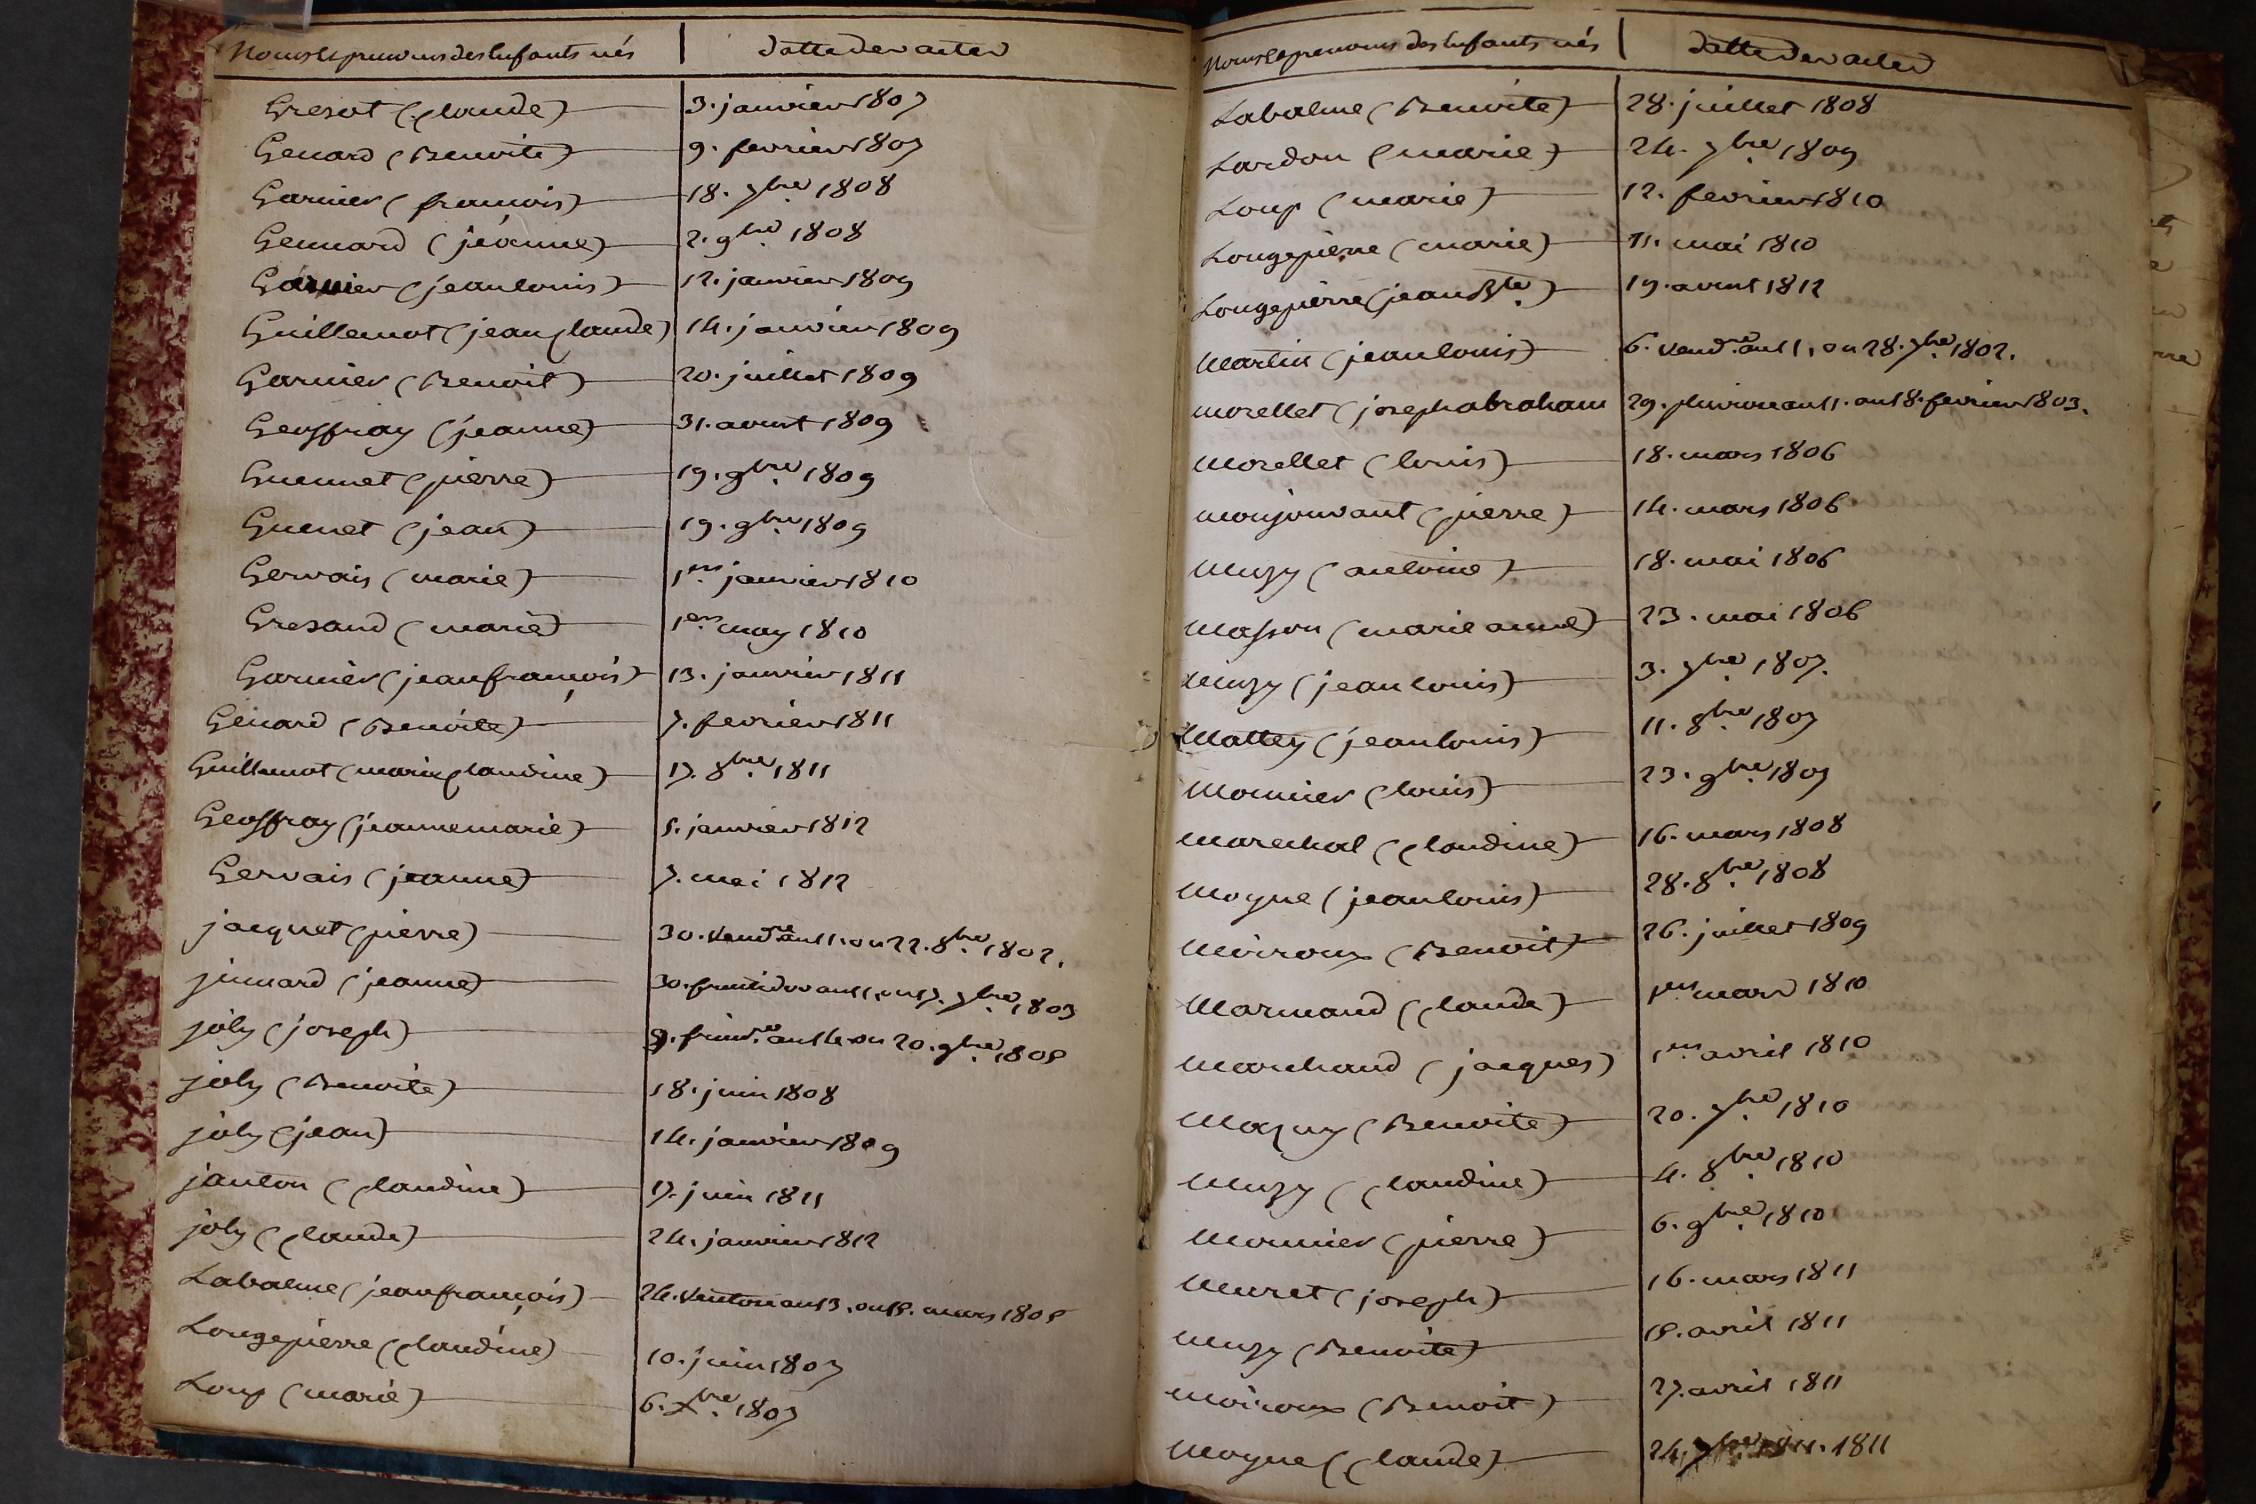 Noms et prenoms des Enfants nés | datte des actes
Gresot (Claude) 3. janvier 1807
Genard (Benoite) 9. fevrier 1807
Garnier (francois) 18. 7bre 1808
Gennard (jeanne) 2. 9bre 1808
Garnier (jean louis) 12. janvier 1809
Guillemot (jean Claude) 14. janvier 1809
Garnier (Benoit) 20. juillet 1809
Geoffray (jeanne) 31. aoust 1809
Guennet (pierre) 19. 9bre 1809
Guenet (jean) 19. 9bre 1809
Gervais (marie) 1er janvier 1810
Gresand (marie) 1er may 1810
Garnier (jean françois) 13. janvier 1811
Genard (Benoite) 7. fevrier 1811
Guillemot (marie Claudine) 17. 8bre 1811
Geoffray (jeanne marie) 5. janvier 1812
Gervais (jeanne) 7. mai 1812
jacquet (pierre) 30. vendre an 11. ou 22. 8bre 1802.
junard (jeanne) 30. fructidor an 11. ou 17. 7bre 1803
joly (joseph) frimre an 14 ou 20. 9bre 1805
joly (Benoite) 18. juin 1808
joly (jean) 14. janvier 1809
janton (Claudine) 17. juin 1811
joly (Claude) 24. janvier 1812
Labalme (jean françois) 24. ventose an 13. ou 15. mars 1805
Longepierre (Claudine) 10. juin 1807
Loup (marie) 6. Xbre 1807
Noms et prenoms des Enfants nés | datte des actes
Labalme (Benoite) 28. juillet 1808
Lardon (marie) 24. 7bre 1809
Loup (marie) 12. fevrier 1810
Longepierre (marie) 11. mai 1810
Longepierre (jean Bte) 19. aoust 1812
Martin (jean louis) 6. vendre an 11, ou 28. 7bre 1802.
morellet (joseph abraham 29. pluviose an 11. ou 18. fevrier 1803.
Morellet (louis) 18. mars 1806
monjouvant (pierre) 14. mars 1806
Muzy (antoine) 18. mai 1806
Masson (marie anne) 23. mai 1806
Muzy (jean louis) 3. 7bre 1807.
Mattey (jean louis) 11. 8bre 1807
Monnier (louis) 23. 9bre 1807
Marechal (Claudine) 16. mars 1808
Moyne (jean louis) 28. 8bre 1808
Moiroux (Benoit) 26. juillet 1809
Marmand (Claude) 1er mars 1810
Marchand (jacques) 1er avril 1810
Mazuy (Benoite) 20. 7bre 1810
Muzy (Claudine) 4. 8bre 1810
Monnier (pierre) 6. 9bre 1810
Muret (joseph) 16. mars 1811
Muzy (Benoite) 15. avril 1811
Moiroux (Benoit) 27. avril 1811
Moyne (Claude) 24. 7bre 1811